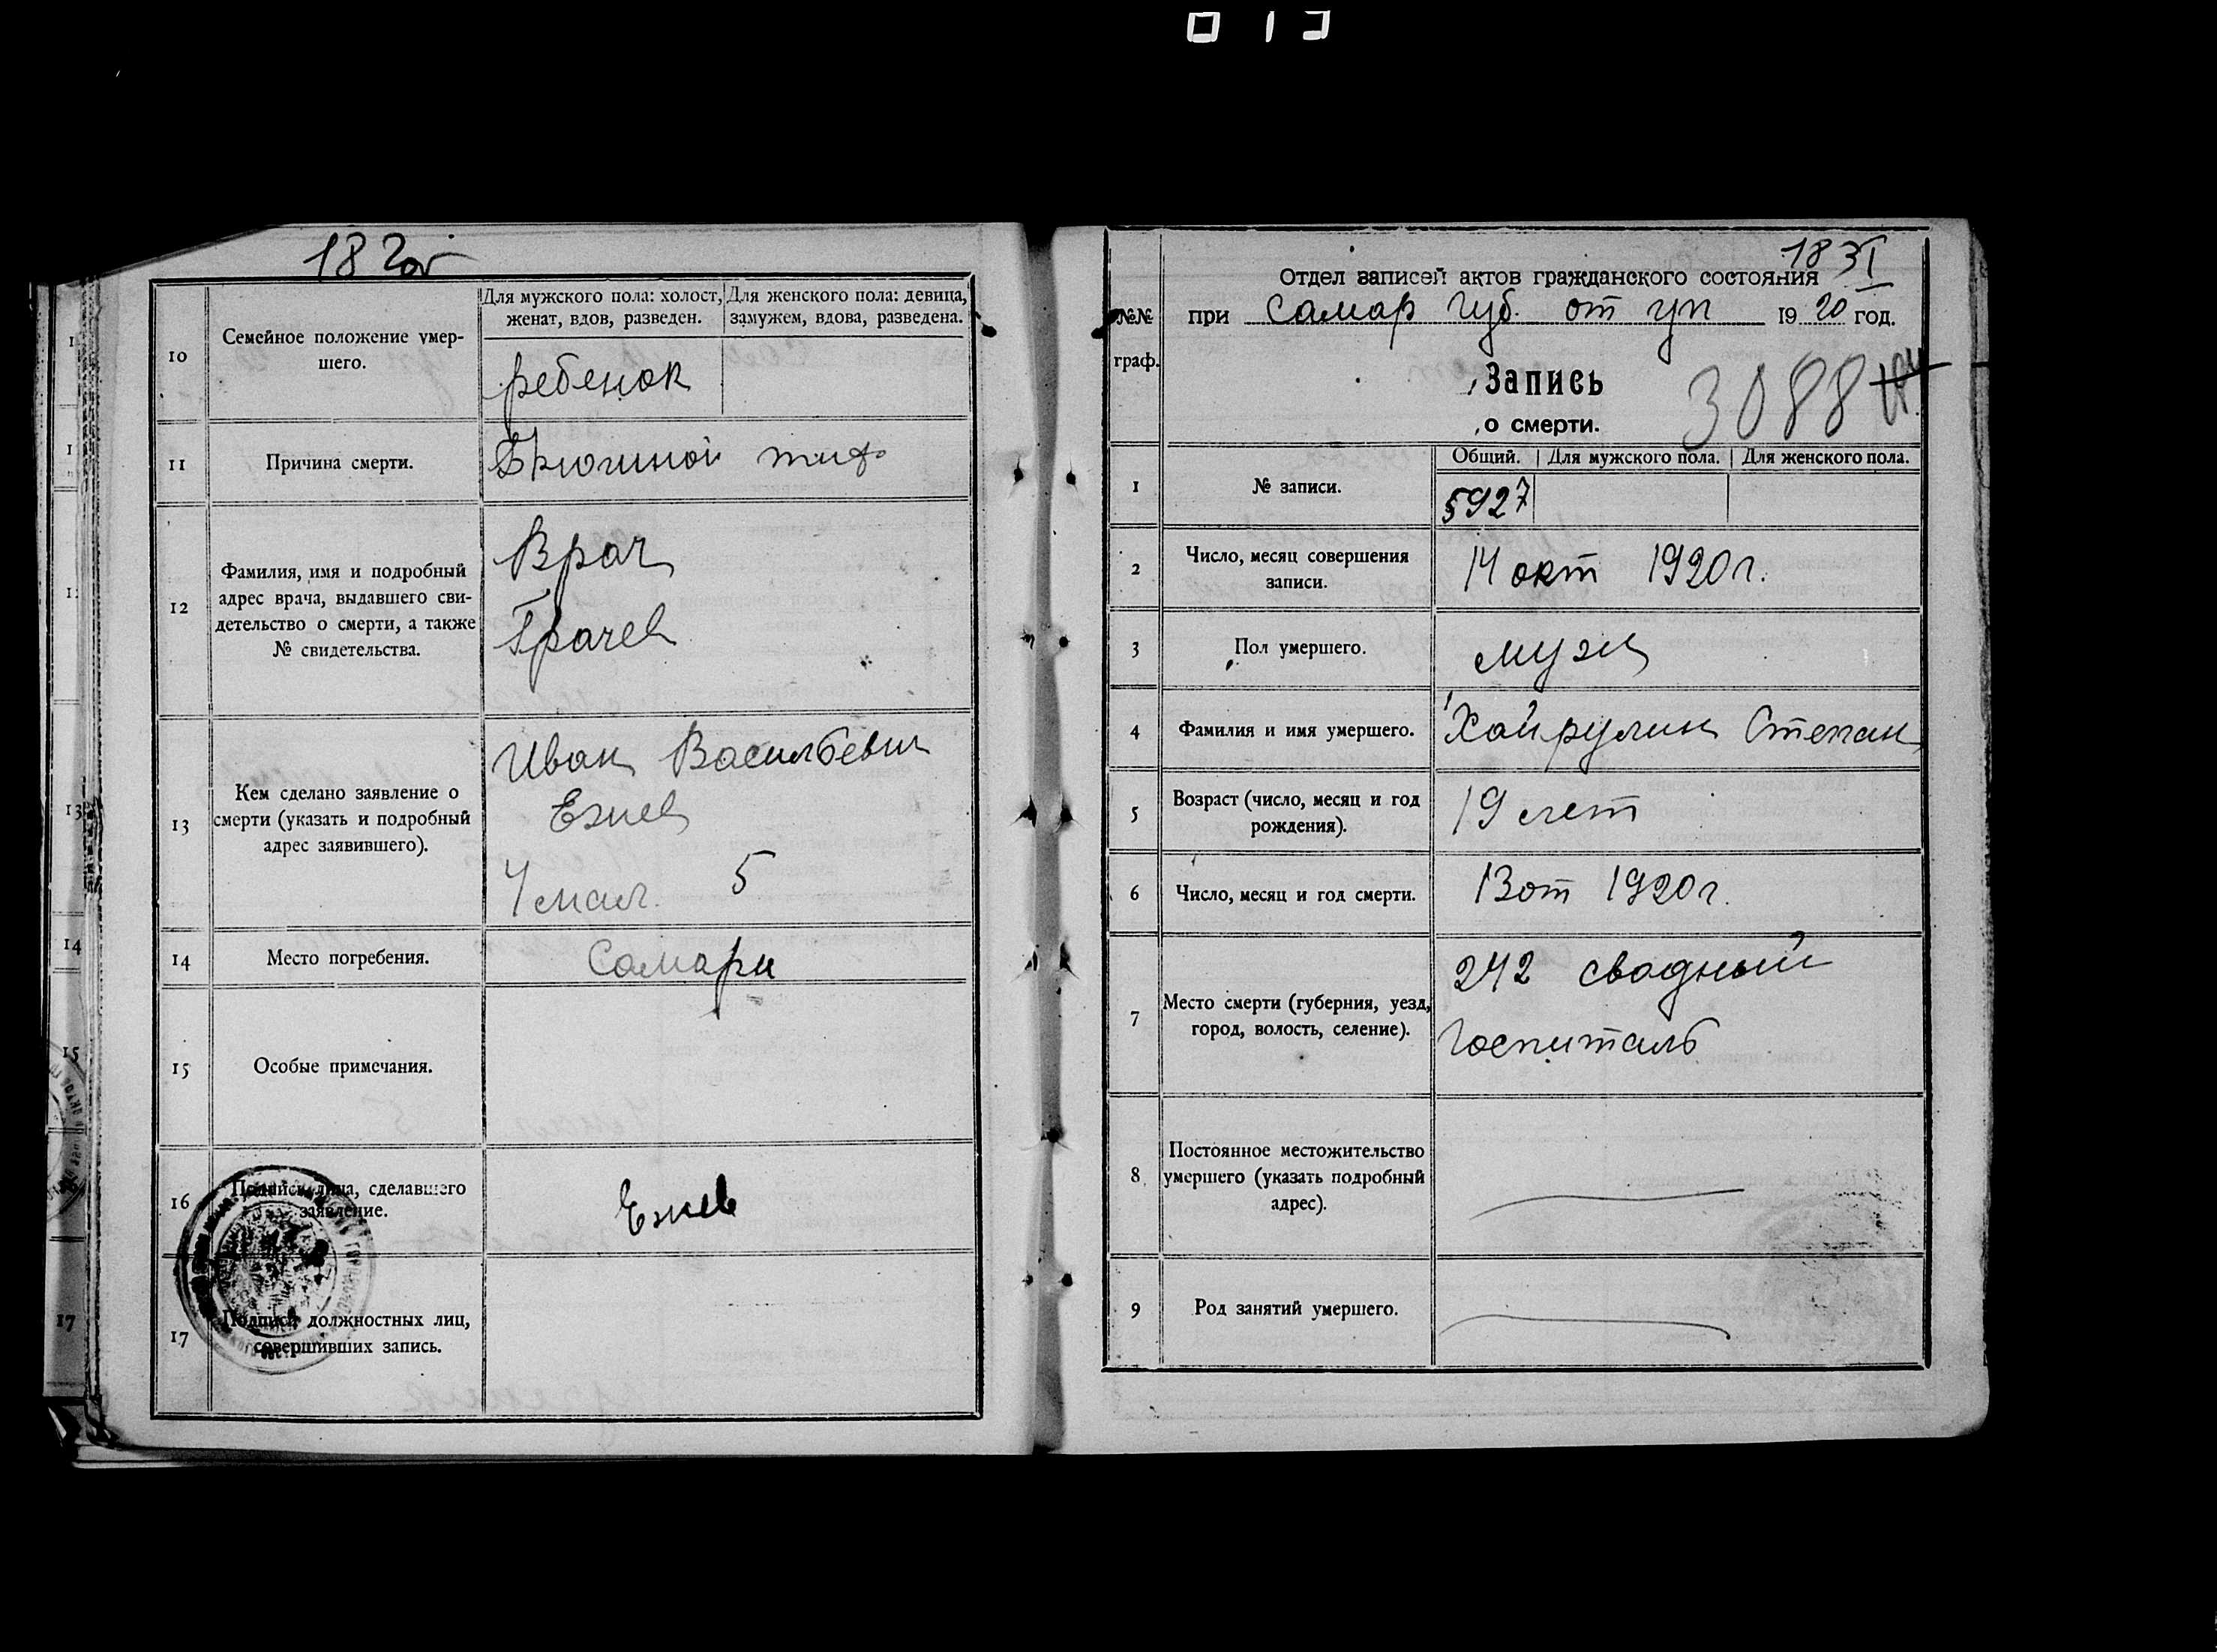 013
182об
10
Семейное положение умер-
шего.
Для мужского пола: холост,
женат, вдов, разведен.
Для женского пола: девица,
замужем, вдова, разведена.
ребенок
11
Причина смерти.
Брюшной тиф
12
Фамилия, имя и подробный
адрес врача, выдавшего сви-
детельство о смерти, а также
№ свидетельства.
Врач
Грачев
13
Кем сделано заявление о
смерти (указать и подробный
адрес заявившего).
Иван Васильевич
Ежев
5
14
Место погребения.
Самара
15
Особые примечания.
16
Подпись лица, сделавшего
заявление.
Ежев
17
Подписи должностных лиц,
совершивших запись.
14
15
17
183
Отдел записей актов гражданского состояния
№№
граф.
при Самар Губ. от уп 1920 год.
Запись
о смерти.
3088
Общий.
Для мужского пола.
Для женского пола.
1
№ записи.
5927
2
Число, месяц совершения
записи.
14 окт 1920 г.
3
Пол умершего.
муж
4
Фамилия и имя умершего.
Хайрулин Степан
5
Возраст (число, месяц и год
рождения).
19 лет
6
Число, месяц и год смерти.
13 от 1920 г.
7
Место смерти (губерния, уезд,
город, волость, селение).
242 сводный
Госпиталь
8
Постоянное местожительство
умершего (указать подробный
адрес).
9
Род занятий умершего.